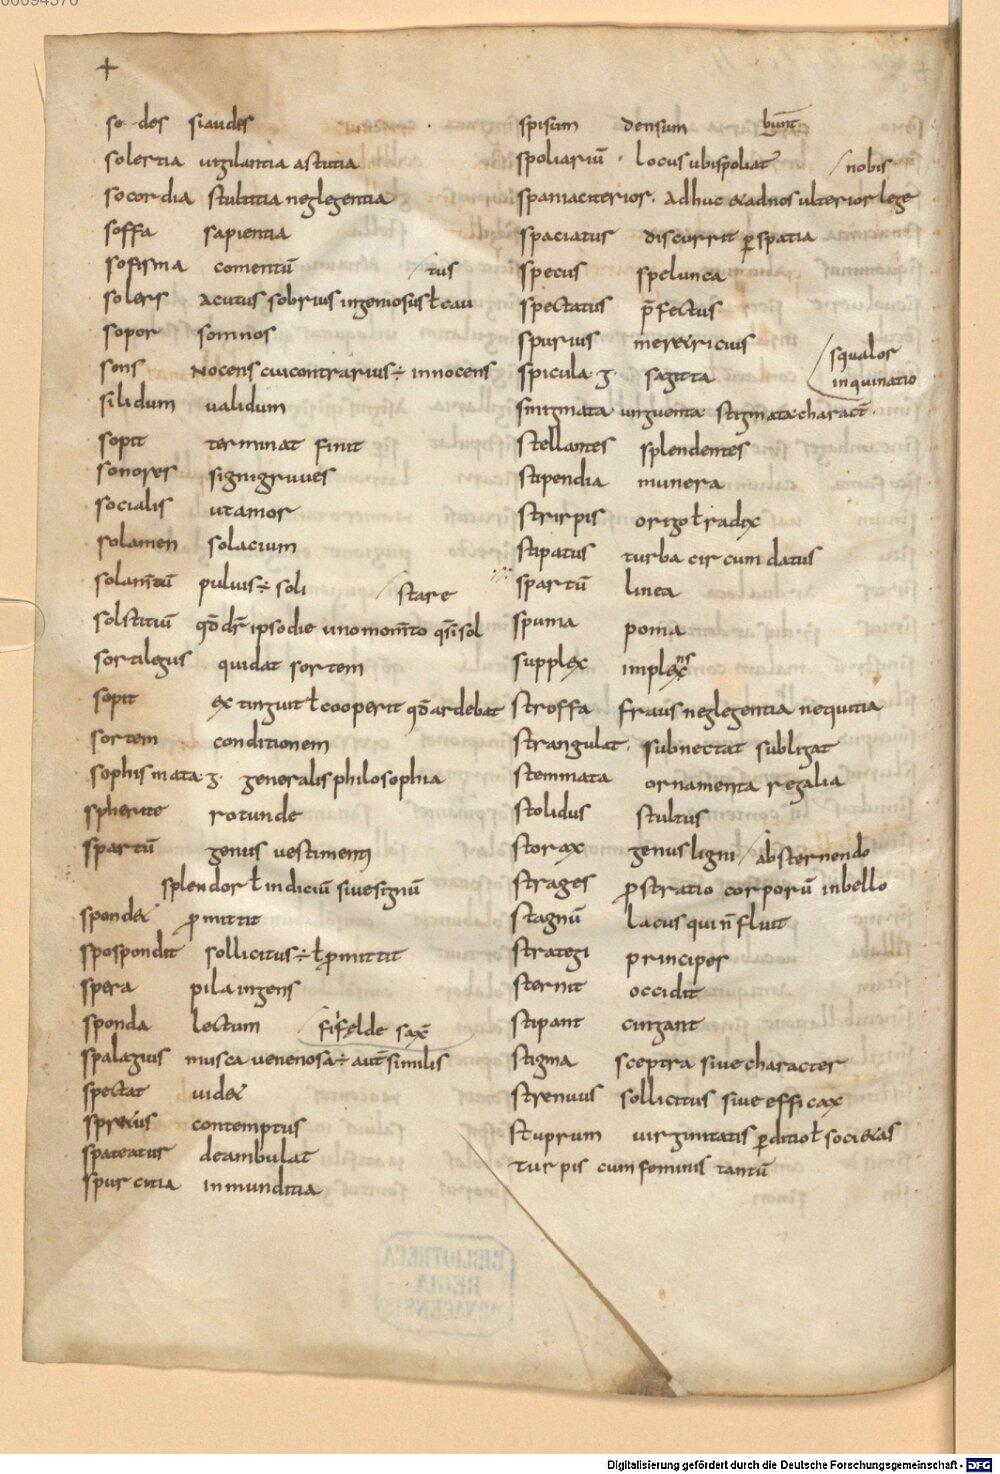 +
so des siaudes
solertia uigilantia astutia
socordia stultitia neglegentia
soffa sapientia
sofisma comentū /tus
solers acutus sobrius ingeniosus ł cau
sopor somnos
sons nocens cui contrarius ÷ innocens
silidum ualidum
sopit terminat finit
sonores signigruues
socialis ut amor
solamen solacium
solam̄tū puluis ÷ soli /stare
solstitiū qd̄ dr̄ ipso die uno mom̄to qsi sol
sortilegus qui dat sortem
sopit extinguit ł cooperit qd̄ ardebat
sortem conditionem
sophismata · g · generalis philosophia
spherite rotunde
spartū genus uestimenti
splendor ł indiciū siue signū
spondet promittit
spospondit sollicitus ÷ ł promittit
spera pila ingens
sponda lectum /fifelde sax̄
spalagius musca uenenosa ÷ aut̄ similis
spectat uidet
spretus contemptus
spateatus deambulat
spurcitia inmunditia
spisum densum bunt
spoliariū · locus ubi spoliat᷑ /nobis
spania citerior · adhuc et ad nos ulterior lege
spaciatus discurrit p̱ spatia
specus spelunca
spectatus p̄fectus
spurius meretricius
spicula · g · sagitta /squalor
inquinatio
smigmata unguenta stigmata charact̄ ·
stellantes splendentes
stipendia munera
stirpis origo ł radix
stipatus turba circumdatus
spartū linea
spuma poma
supplex implexns
stroffa fraus neglegentia nequitia
strangulat · subnectat subligat
stemmata ornamenta regalia
stolidus stultus
storax genus ligni /absternendo
strages prostratio corporū in bello
stagnū lacus qui n̄ fluit
strategi principes
sternit occidit
stipant cingant
stigma sceptra siue character
strenuus sollicitus siue efficax
stuprum uirginitatis p̱ditio ł societas
turpis cum feminis tantū
BIBLIOTHECA
REGIA
MONACENSIS
Digitalisierung gefördert durch die Deutsche Forschungsgemeinschaft - DFG